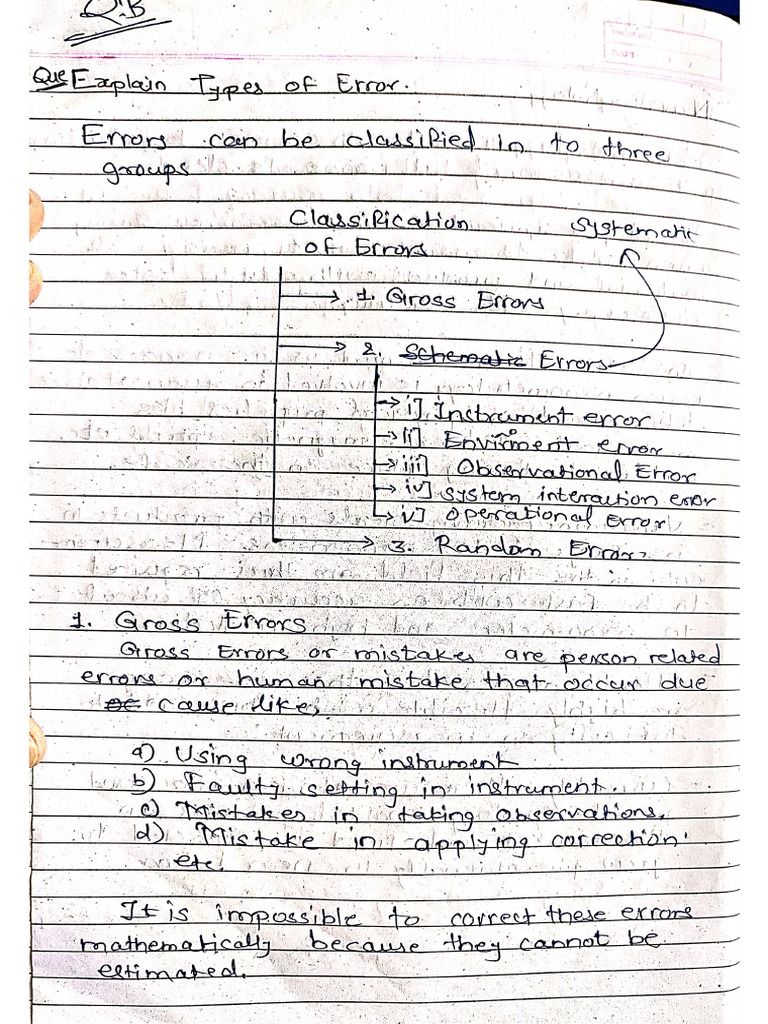 Q.B
Que Explain Types of Error.
Errors can be classified in to three
groups
Classification
of Errors
systematic
1. Gross Errors
2. Schematic Errors
i] Instrument error
ii] Enviroment error
iii] Observational Error
iv] system interaction error
v] Operational Error
3. Random Error.
1. Gross Errors
Gross Errors or mistakes are person related
errors or human mistake that occur due
cause like,
a) Using wrong instrument
b) Faulty setting in instrument.
c) Mistakes in taking observations.
d) Mistake in applying correction
etc.
It is impossible to correct these errors
mathematically because they cannot be
estimated.